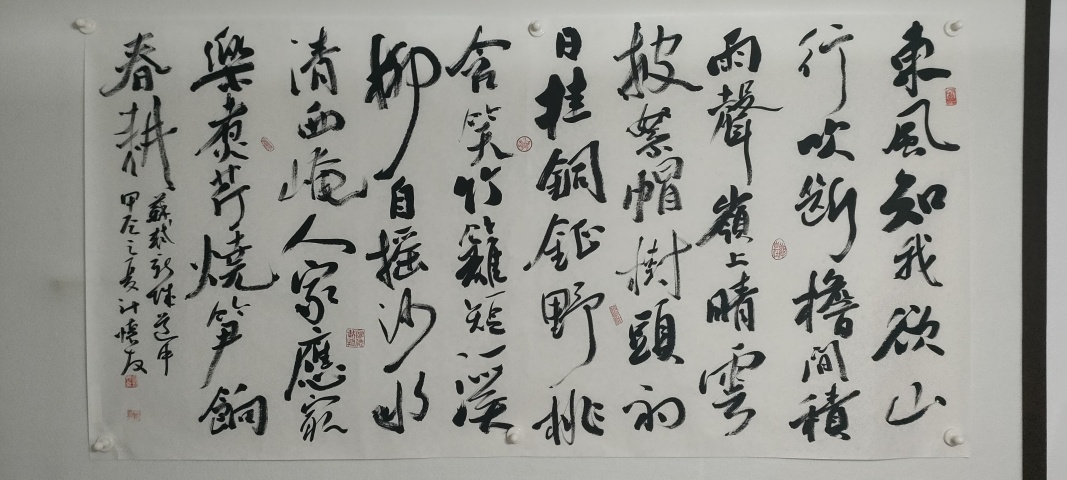 東風知我欲山
行吹斷檐間積
雨聲嶺上晴雲
披絮帽樹頭初
日挂銅鉦野桃
含笑竹籬短溪
柳自摇沙水
清西崦人家應最
樂煮芹燒筍餉
春耕
蘇軾新城道中
甲辰之夏